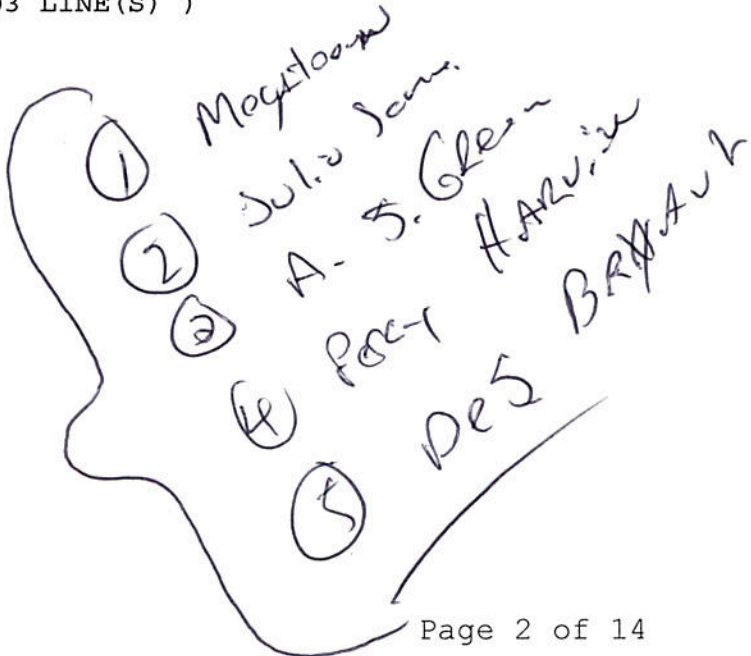 03 LINE(S) )
① Megatron
② Julio Jones
③ A. J. Green
④ Percy HARVIN
⑤ Dez BRYAnt
Page 2 of 14